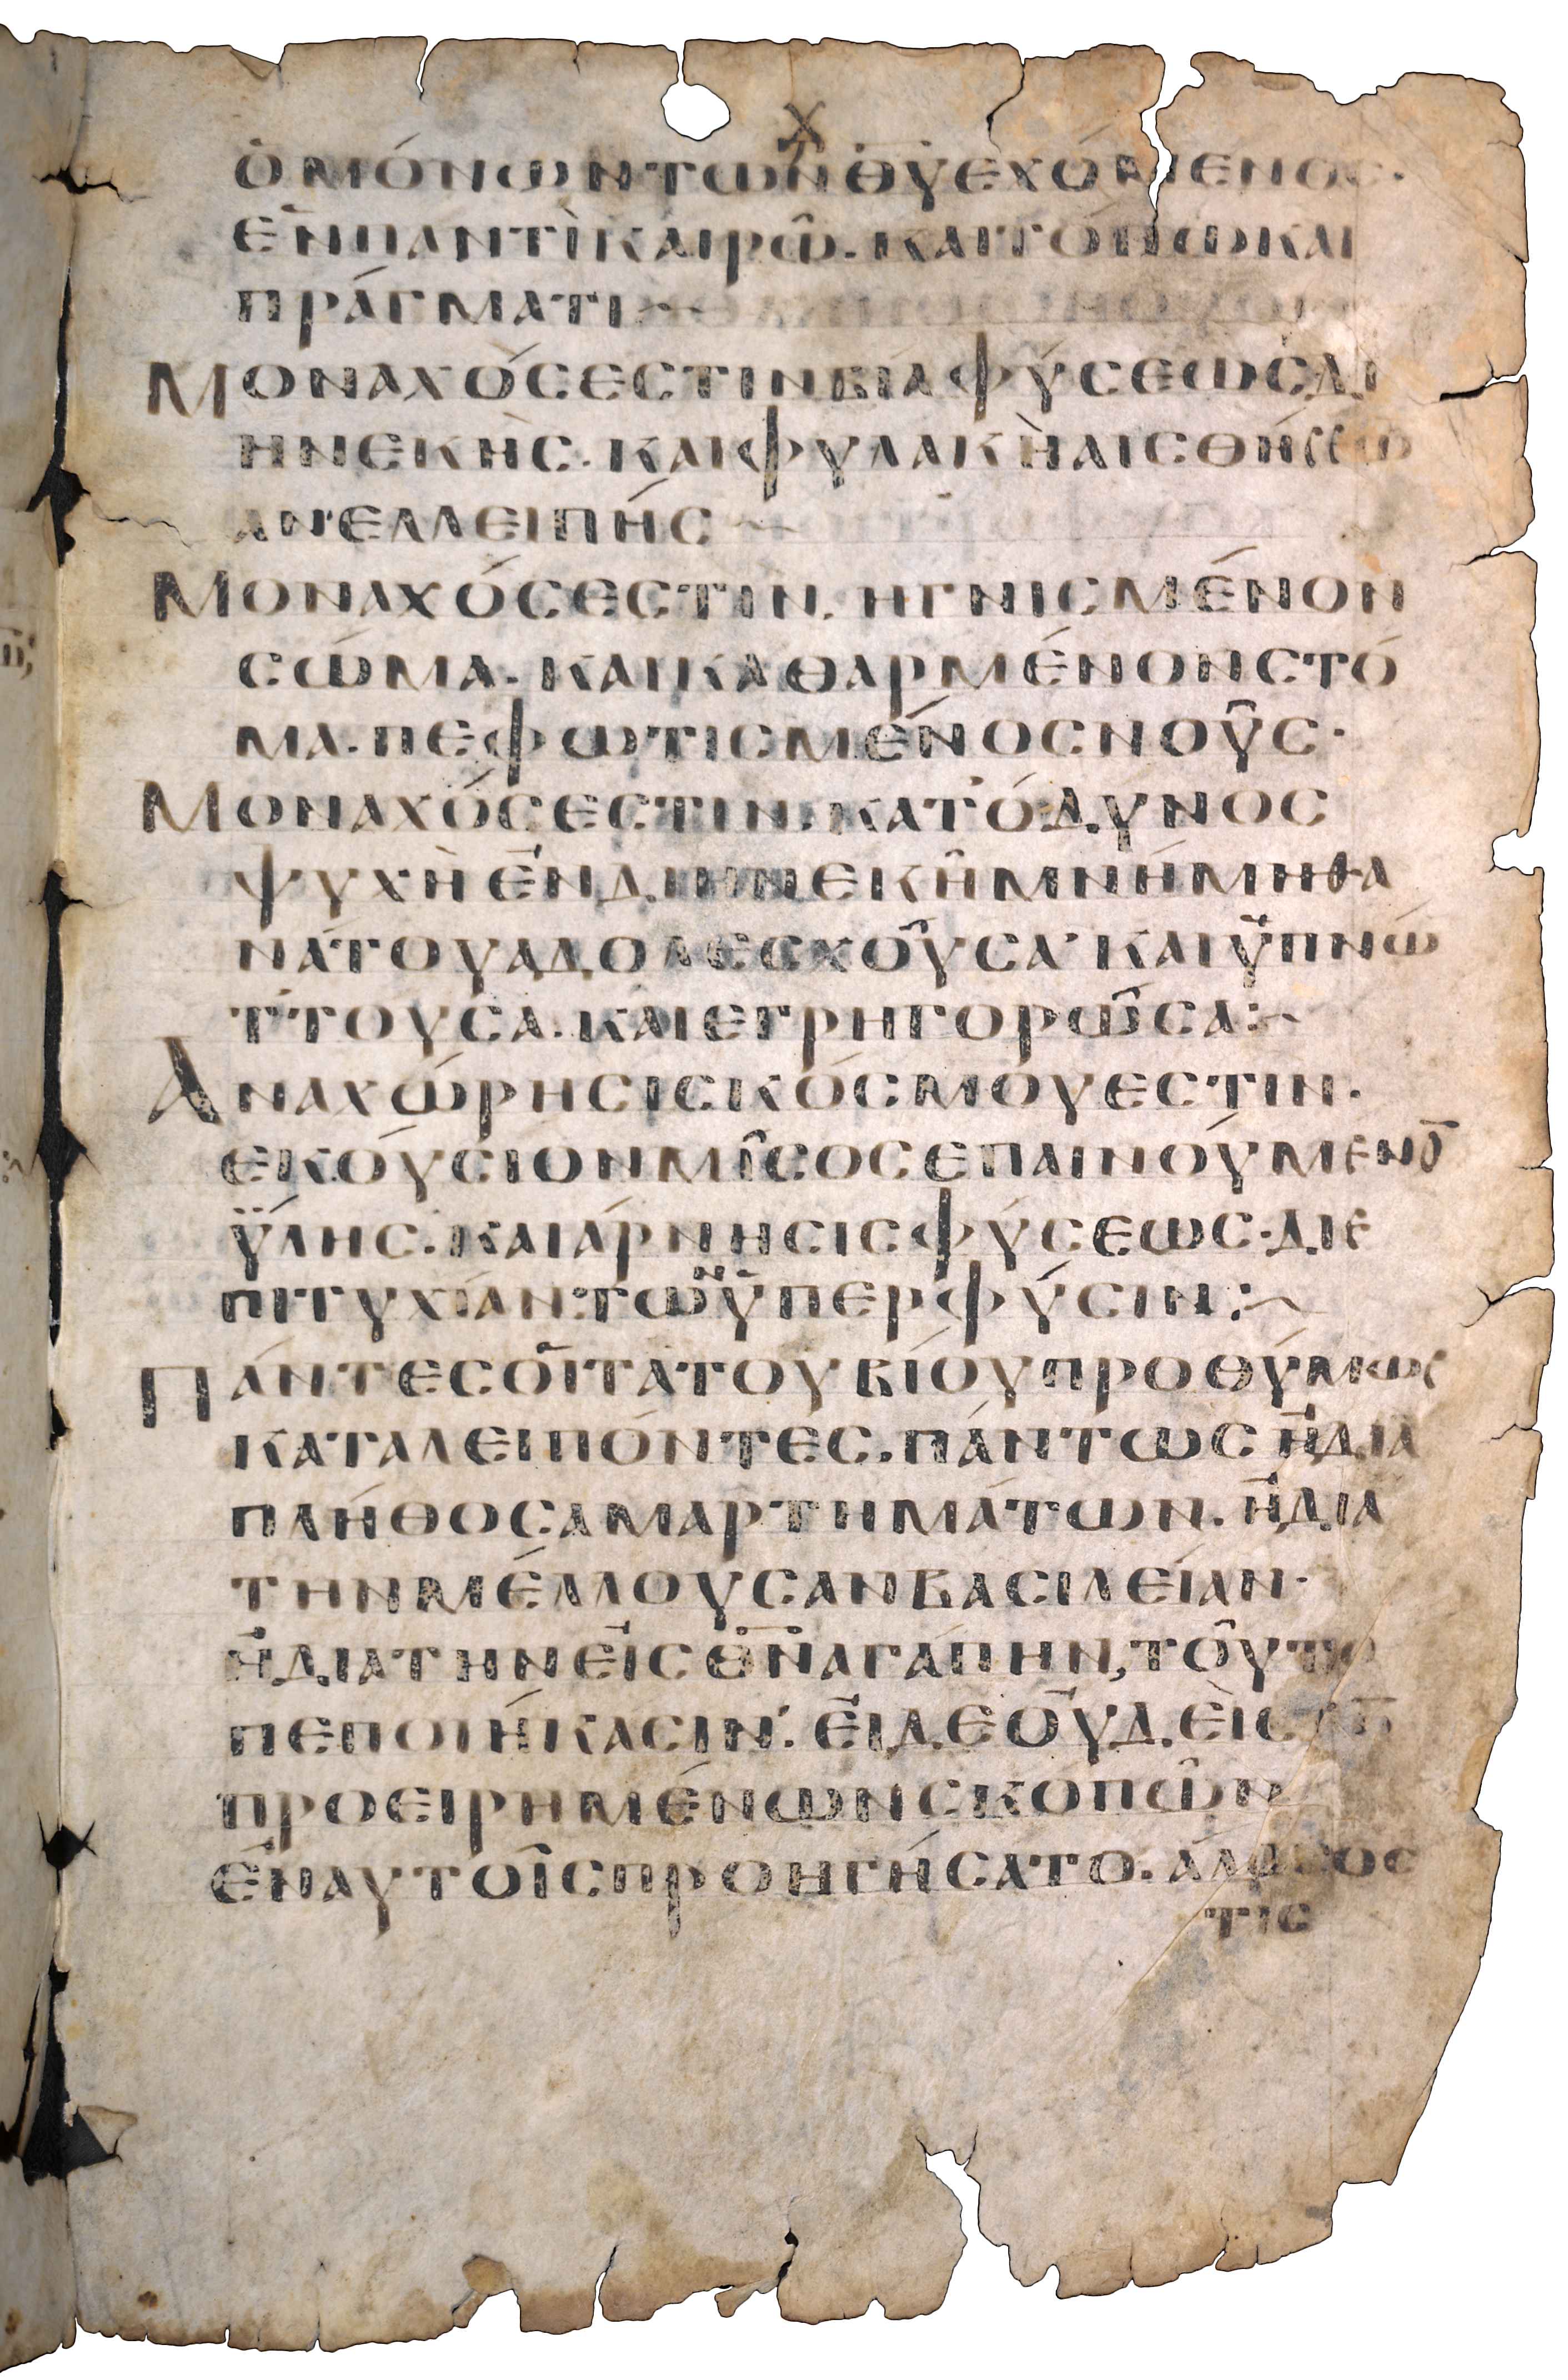 χ
ὁ μόνων τῶν θ̅υ̅ ἐχόμενος·
ἐν παντὶ καιρῶ· καὶ τόπω καὶ
πράγματι
Μοναχός ἐστιν βία φύσεως δι
ηνεκὴς· καὶ φυλακὴ αἰσθήσεω
ἀνελλειπής
Μοναχός ἐστιν, ἡγνισμένον
σῶμα· καὶ καθαρμένον στό
μα· πεφωτισμένος νοῦς·
Μοναχός ἐστιν· κατόδυνος
ψυχὴ ἐν διηνεκῆ μνήμη θα
νάτου ἀδολεσχοῦσα· καὶ ὑπνώ
ττουσα· καὶ ἐγρηγορῶσα:~
Ἀναχώρησις κόσμου ἐστιν·
ἑκούσιον μῖσος ἐπαινουμέν̅ȣ
ὕλης· καὶ ἄρνησις φύσεως· δι ἐ
πιτυχίαν τῶν ὑπὲρ φύσιν:~
Πάντες οἱ τὰ τοῦ βίου προθύμως
καταλειπόντες· πάντως ἢ διὰ
πλῆθος ἁμαρτημάτων· ἢ διὰ
τὴν μέλλουσαν βασιλείαν·
ἢ διὰ τὴν εἰς θ̅ν̅ ἀγάπην, τοῦτο
πεποιήκασιν· εἰ δὲ οὐδεὶς
προειρημένων σκοπῶν
ἐν αὐτοῖς προηγήσατο· ἄλογος
τις